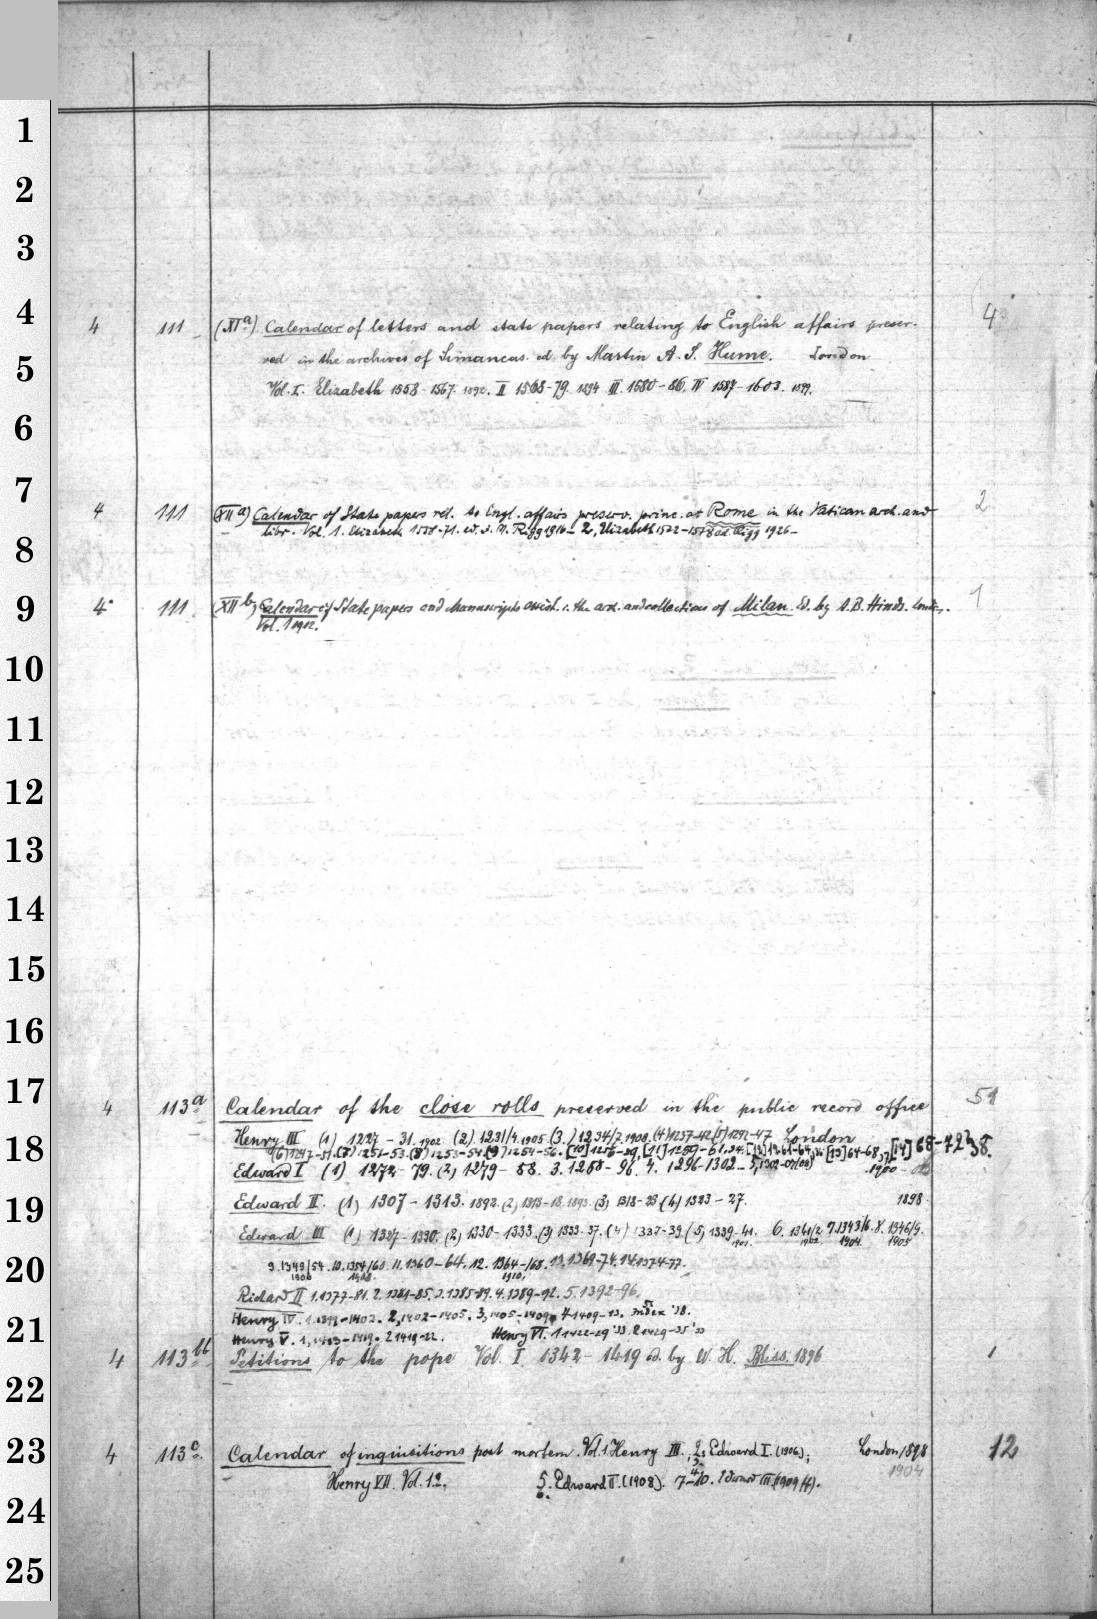 1
2
3
4
4 111 (XIa) Calendar of letters and state papers relating to English affairs preser- 4
ved in the archives of Simancas. ed. by Martin A. S. Hume. London
5
Vol. I. Elizabeth 1558-1567. 1892. II 1568-79. 1894 III. 1580-86. IV 1587-1603. 1899.
6
7
4 111 (XIIa) Calendar of State papers rel. to Engl. affairs preserv. princ. at Rome in the Vatican arch. and 2
libr. Vol. 1. Elizabeth 1558-71. ed. J. M. Rigg 1916- 2, Elizabeth 1572-1578 ed. Rigg 1926-
8
9
4 111 (XIIb) Calendar of State papers and Manuscripts exist. i. the arch. and collections of Milan. Ed. by A. B. Hinds. London. 1
Vol. 1 1912.
10
11
12
13
14
15
16
17
4 113a Calendar of the close rolls preserved in the public record office 51
Henry III (1) 1227-31. 1902 (2) 1231/4. 1905 (3.) 1234/7. 1908. (4) 1237-42 (5) 1242-47 London
18
(6) 1247-51 (7) 1251-53 (8) 1253-54 (9) 1254-56. [10] 1256-59, [11] 1259-61. [13] 64-68, [14] 68-72 '38.
Edward I (1) 1272-79. (2) 1279-88. 3. 1288-96. 4. 1296-1302- 5, 1302-07 (08) 1900-08
19
Edward II. (1) 1307-1313. 1892. (2) 1313-18. 1893. (3) 1318-23 (4) 1323-27. 1898.
Edward III (1) 1327-1330. (2) 1330-1333. (3) 1333-37. (4) 1337-39 (5) 1339-41. 6. 1341/2 7. 1343/6. 8. 1346/9.
1904. 1905
20
9. 1349/54. 10. 1354/60. 11. 1360-64. 12. 1364-/68. 13. 1369-74. 14. 1374-77.
1906 1908. 1910.
Richard II 1. 1377-81. 2. 1381-85. 3. 1385-89. 4. 1389-92. 5. 1392-96.
Henry IV. 1. 1399-1402. 2, 1402-1405. 3, 1405-1409. 4 1409-13. 5 Index '38.
21
Henry V. 1, 1413-1419. 2 1419-22. Henry VI. 1 1422-29 '33. 2 1429-35 '33
4 113bb Petitions to the pope Vol. I 1342-1419 ed. by W. H. Bliss. 1896 1
22
23
4 113c Calendar of inquisitions post mortem. Vol. 1. Henry III. 2. Edward I. (1906); London, 1898 12
1904
Henry VII. Vol. 1 2. 5. Edward II. (1908). 7-10. Edward III (1909 ff).
6.
24
25